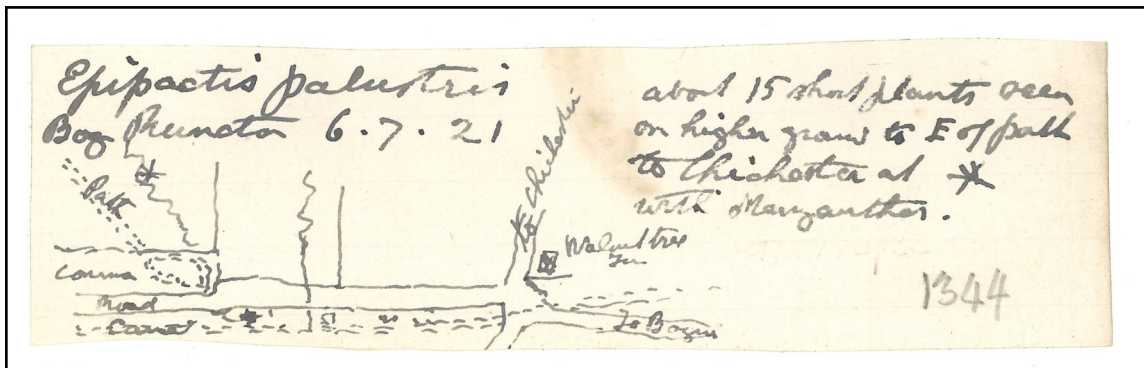 Epipactis palustris
Bog Runcton 6.7.21
about 15 short plants seen
on higher ground to E of path
to Chichester at *
with Menyanthes.
to Chichester
Path
Walnut tree
Inn
Road
Canal
To Bognor
1344